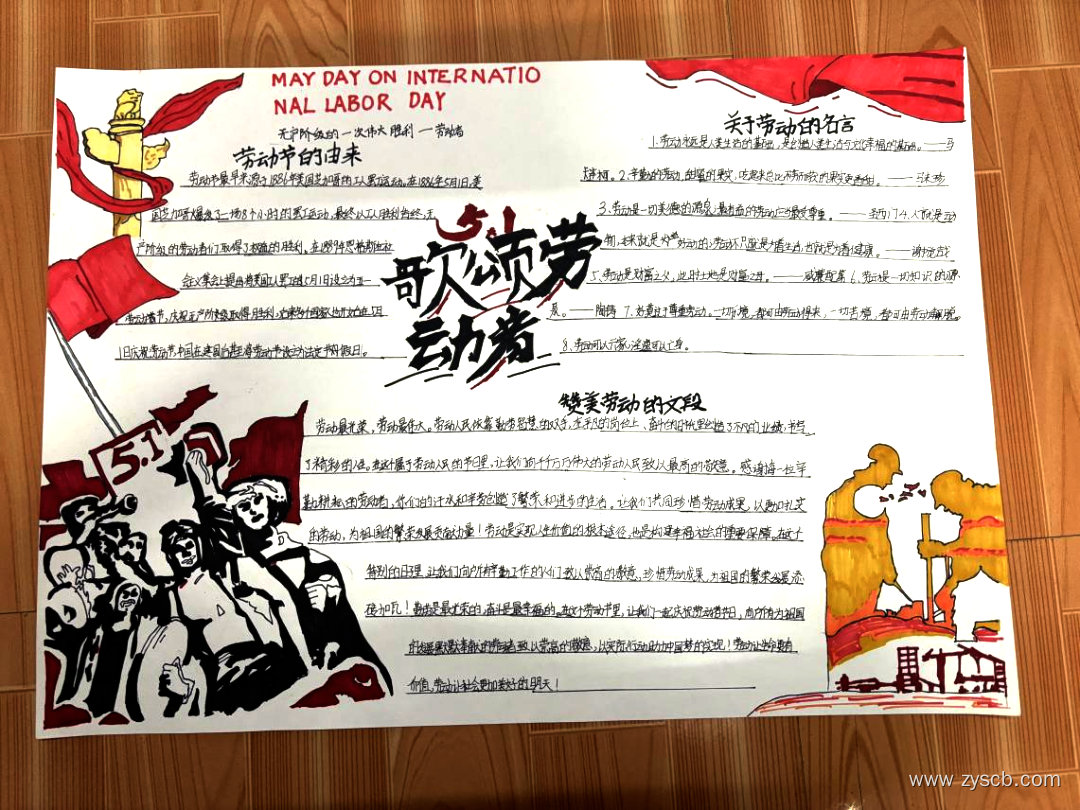 MAY DAY ON INTERNATIO
NAL LABOR DAY
无产阶级的一次伟大胜利 — 劳动者
劳动节的由来
劳动节最早来源于1886年美国芝加哥的工人罢工运动。在1886年5月1日,美
国芝加哥爆发了一场8个小时的罢工运动,最终以工人胜利告终,无
产阶级的劳动者们取得了胜利。在1889年恩格斯
会议集会上提出将美国工人罢工的5月1日设立为五一
劳动节,庆祝无产阶级取得胜利,在5月
1日庆祝劳动节中国在建国后
5.1
歌颂劳
动者
关于劳动的名言
1.劳动永远是人类生活的基础,是创造人类生活与文化幸福的基础。——马
2.辛勤的劳动,
3、劳动是一切美德的源泉,最有益的劳动应当最受尊重。——圣西门 4.人就是动
物,
——谢沧浪
5、劳动是财富之父,土地是财富之母。——威廉配第 6、劳动是一切知识的源
泉。——陶铸 7、
一切乐境,都可由劳动得来,一切苦境,都可由劳动解脱。
8、劳动可以兴家,淫逸可以亡身。
赞美劳动的文段
劳动最光荣,劳动最伟大。劳动人民依靠勤劳智慧的双手,在平凡的岗位上、奋斗的时代里创造了不凡的业绩,书写
了精彩的人生。在这个属于劳动人民的节日里,让我们向千千万万伟大的劳动人民致以最高的敬意。感谢每一位辛
勤耕耘的劳动者,你们的汗水和辛劳创造了繁荣和进步的生活。让我们共同珍惜劳动成果,以勤劳扎实
的劳动,为祖国的繁荣发展贡献力量!劳动是实现人生价值的根本途径,也是构建幸福社会的重要保障,在这个
特别的日子里,让我们向所有辛勤工作的人们致以崇高的敬意,珍惜劳动成果,为祖国的繁荣发展添
砖加瓦!勤劳是最光荣的,奋斗是最幸福的。在这个劳动节里,让我们一起庆祝劳动者节日,向所有为祖国
发展默默奉献的劳动者致以崇高的敬意,以实际行动助力中国梦的实现!劳动让生命更有
价值,劳动让社会更加美好的明天!
5.1
www.zyscb.com